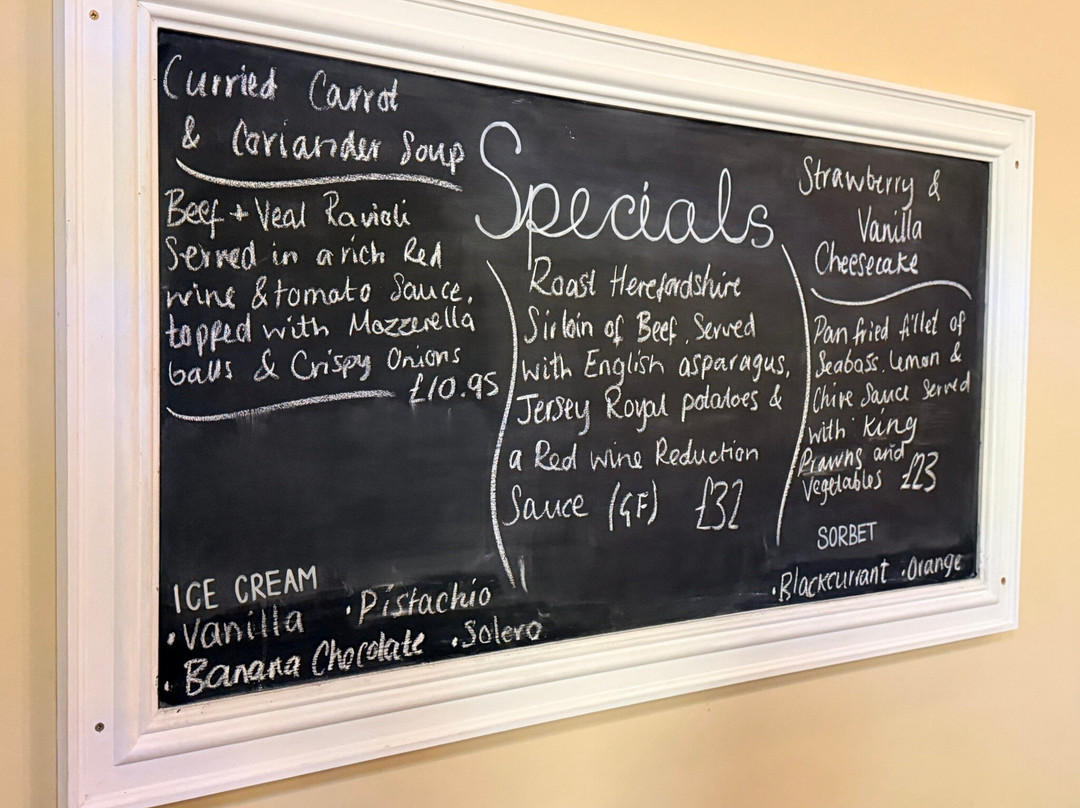 Curried Carrot
& Coriander Soup
Beef + Veal Ravioli
Served in a rich Red
wine & tomato Sauce,
topped with Mozzerella
balls & Crispy Onions
£10.95
ICE CREAM
·Vanilla ·Pistachio
·Banana Chocolate ·Solero
Specials
Roast Herefordshire
Sirloin of Beef, Served
with English asparagus,
Jersey Royal potatoes &
a Red wine Reduction
Sauce (GF) £32
Strawberry &
Vanilla
Cheesecake
Pan fried fillet of
Seabass, Lemon &
Chive Sauce served
with King
Prawns and
Vegetables £23
SORBET
·Blackcurrant ·Orange